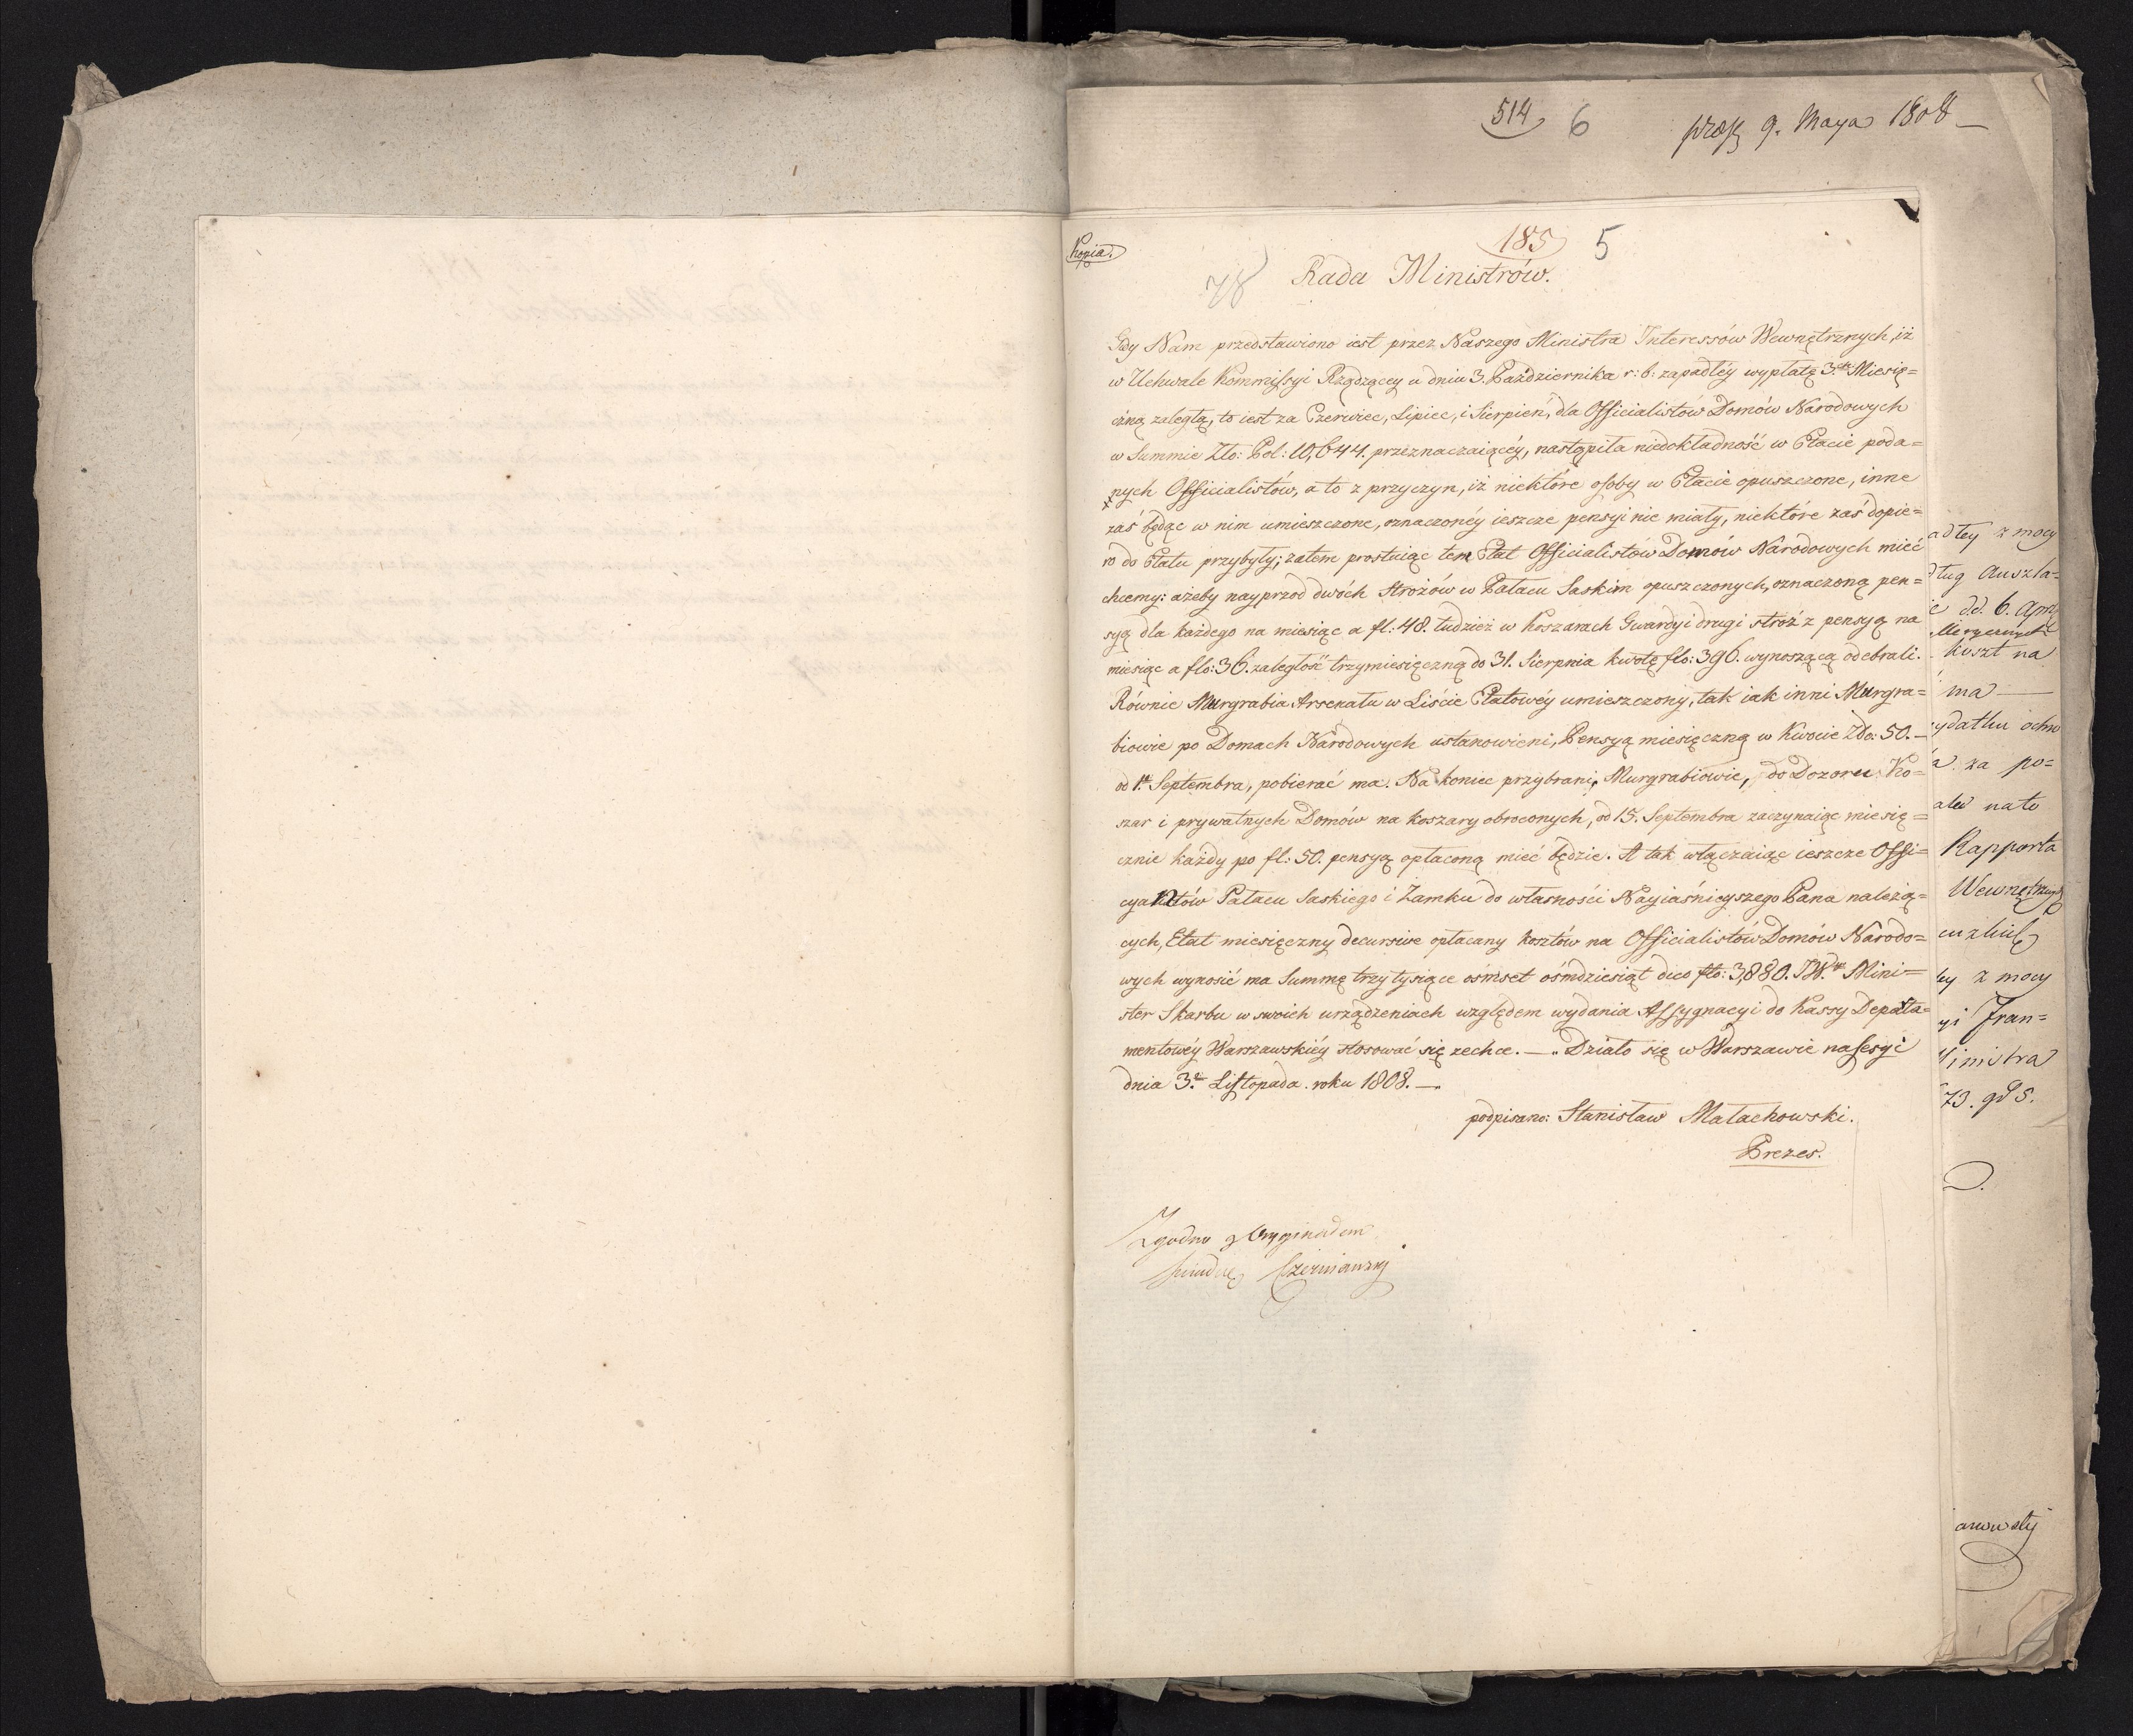 514 6 9. Maya 1808
Kopia.
185 5
78 Rada Ministrów.
Gdy Nam przedstawiono iest przez Naszego Ministra Interessów Wewnętrznych, iż
w Uchwale Kommissyi Rządzącey u dniu 3. Października r: b: zapadłéy wypłatę 3. Miesię=
czną zaległą, to iest za Czerwiec, Lipiec, i Sierpień, dla Officialistów Domów Narodowych
w Summie Zło: Pol: 10,644. przeznaczaiącéy, nastąpiła niedokładność w Etacie poda=
nych Officialistów, a to z przyczyn, iż niektóre osoby w Etacie opuszczone, inne
zaś będąc w nim umieszczone, oznaczonéy ieszcze pensyi nie miały, niektóre zaś dopie=
ro do Etatu przybyły; zatem prostuiąc ten Etat Officialistów Domów Narodowych mieć
chcemy: ażeby nayprzod dwóch Strożów w Pałacu Saskim opuszczonych, oznaczoną pen=
syą dla każdego na miesiąc a fl: 48. tudzież w Koszarach Gwardyi drugi stróż z pensyą na
miesiąc a flo: 36. zaległość trzymiesięczną do 31. Sierpnia kwotę flo: 396. wynoszącą odebrali.
Równie Murgrabia Arsenału w Liście Etatowéy umieszczony, tak iak inni Murgra=
biowie po Domach Narodowych ustanowieni, Pensyą miesięczną w Kwocie Zło: 50. —
od 1. Septembra, pobierać ma. Na koniec przybrani, Murgrabiowie, do Dozoru Ko=
szar i prywatnych Domów na koszary obroconych, od 15. Septembra zaczynaiąc miesię=
cznie każdy po fl: 50. pensyą opłaconą mieć będzie. A tak włączaiąc ieszcze Offi=
cyantów Pałacu Saskiego i Zamku do własności Nayiaśnieyszego Pana należą=
cych, Etat miesięczny decursive opłacany kosztów na Officialistów Domów Narodo=
wych wynosić ma Summę trzy tysiące ośmset ośmdziesiąt dico flo: 3,880. JW Mini=
ster Skarbu w swoich urządzeniach względem wydania Assygnacyi do Kassy Departa=
mentowéy Warszawskiéy stosować się zechce. — Działo się w Warszawie na sesyi
dnia 3. Listopada roku 1808. —
podpisano: Stanisław Małachowski.
Prezes.
Zgodno z Oryginałem
z mocy
dd. 6.
koszt na
ma —
za po=
nato
Rapporta
z mocy
Fran=
73. gd 5.